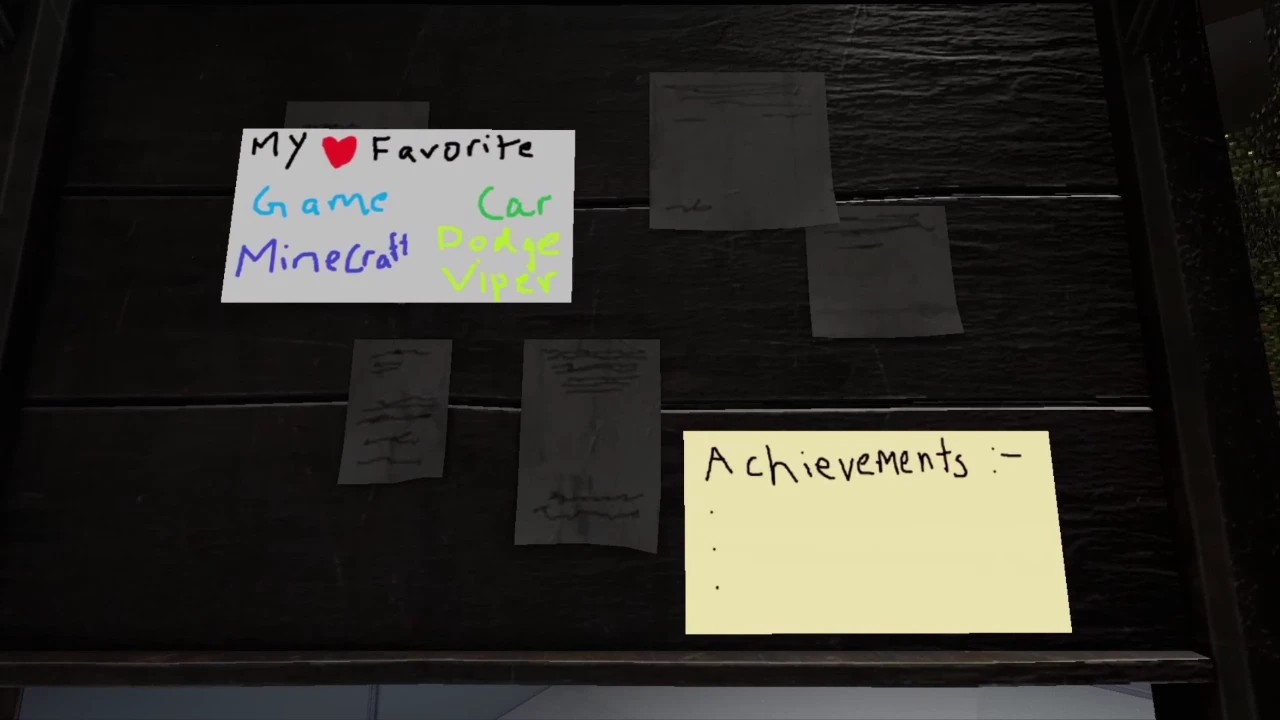 My ❤ Favorite
Game Car
Minecraft Dodge
Viper
Achievements :-
.
.
.